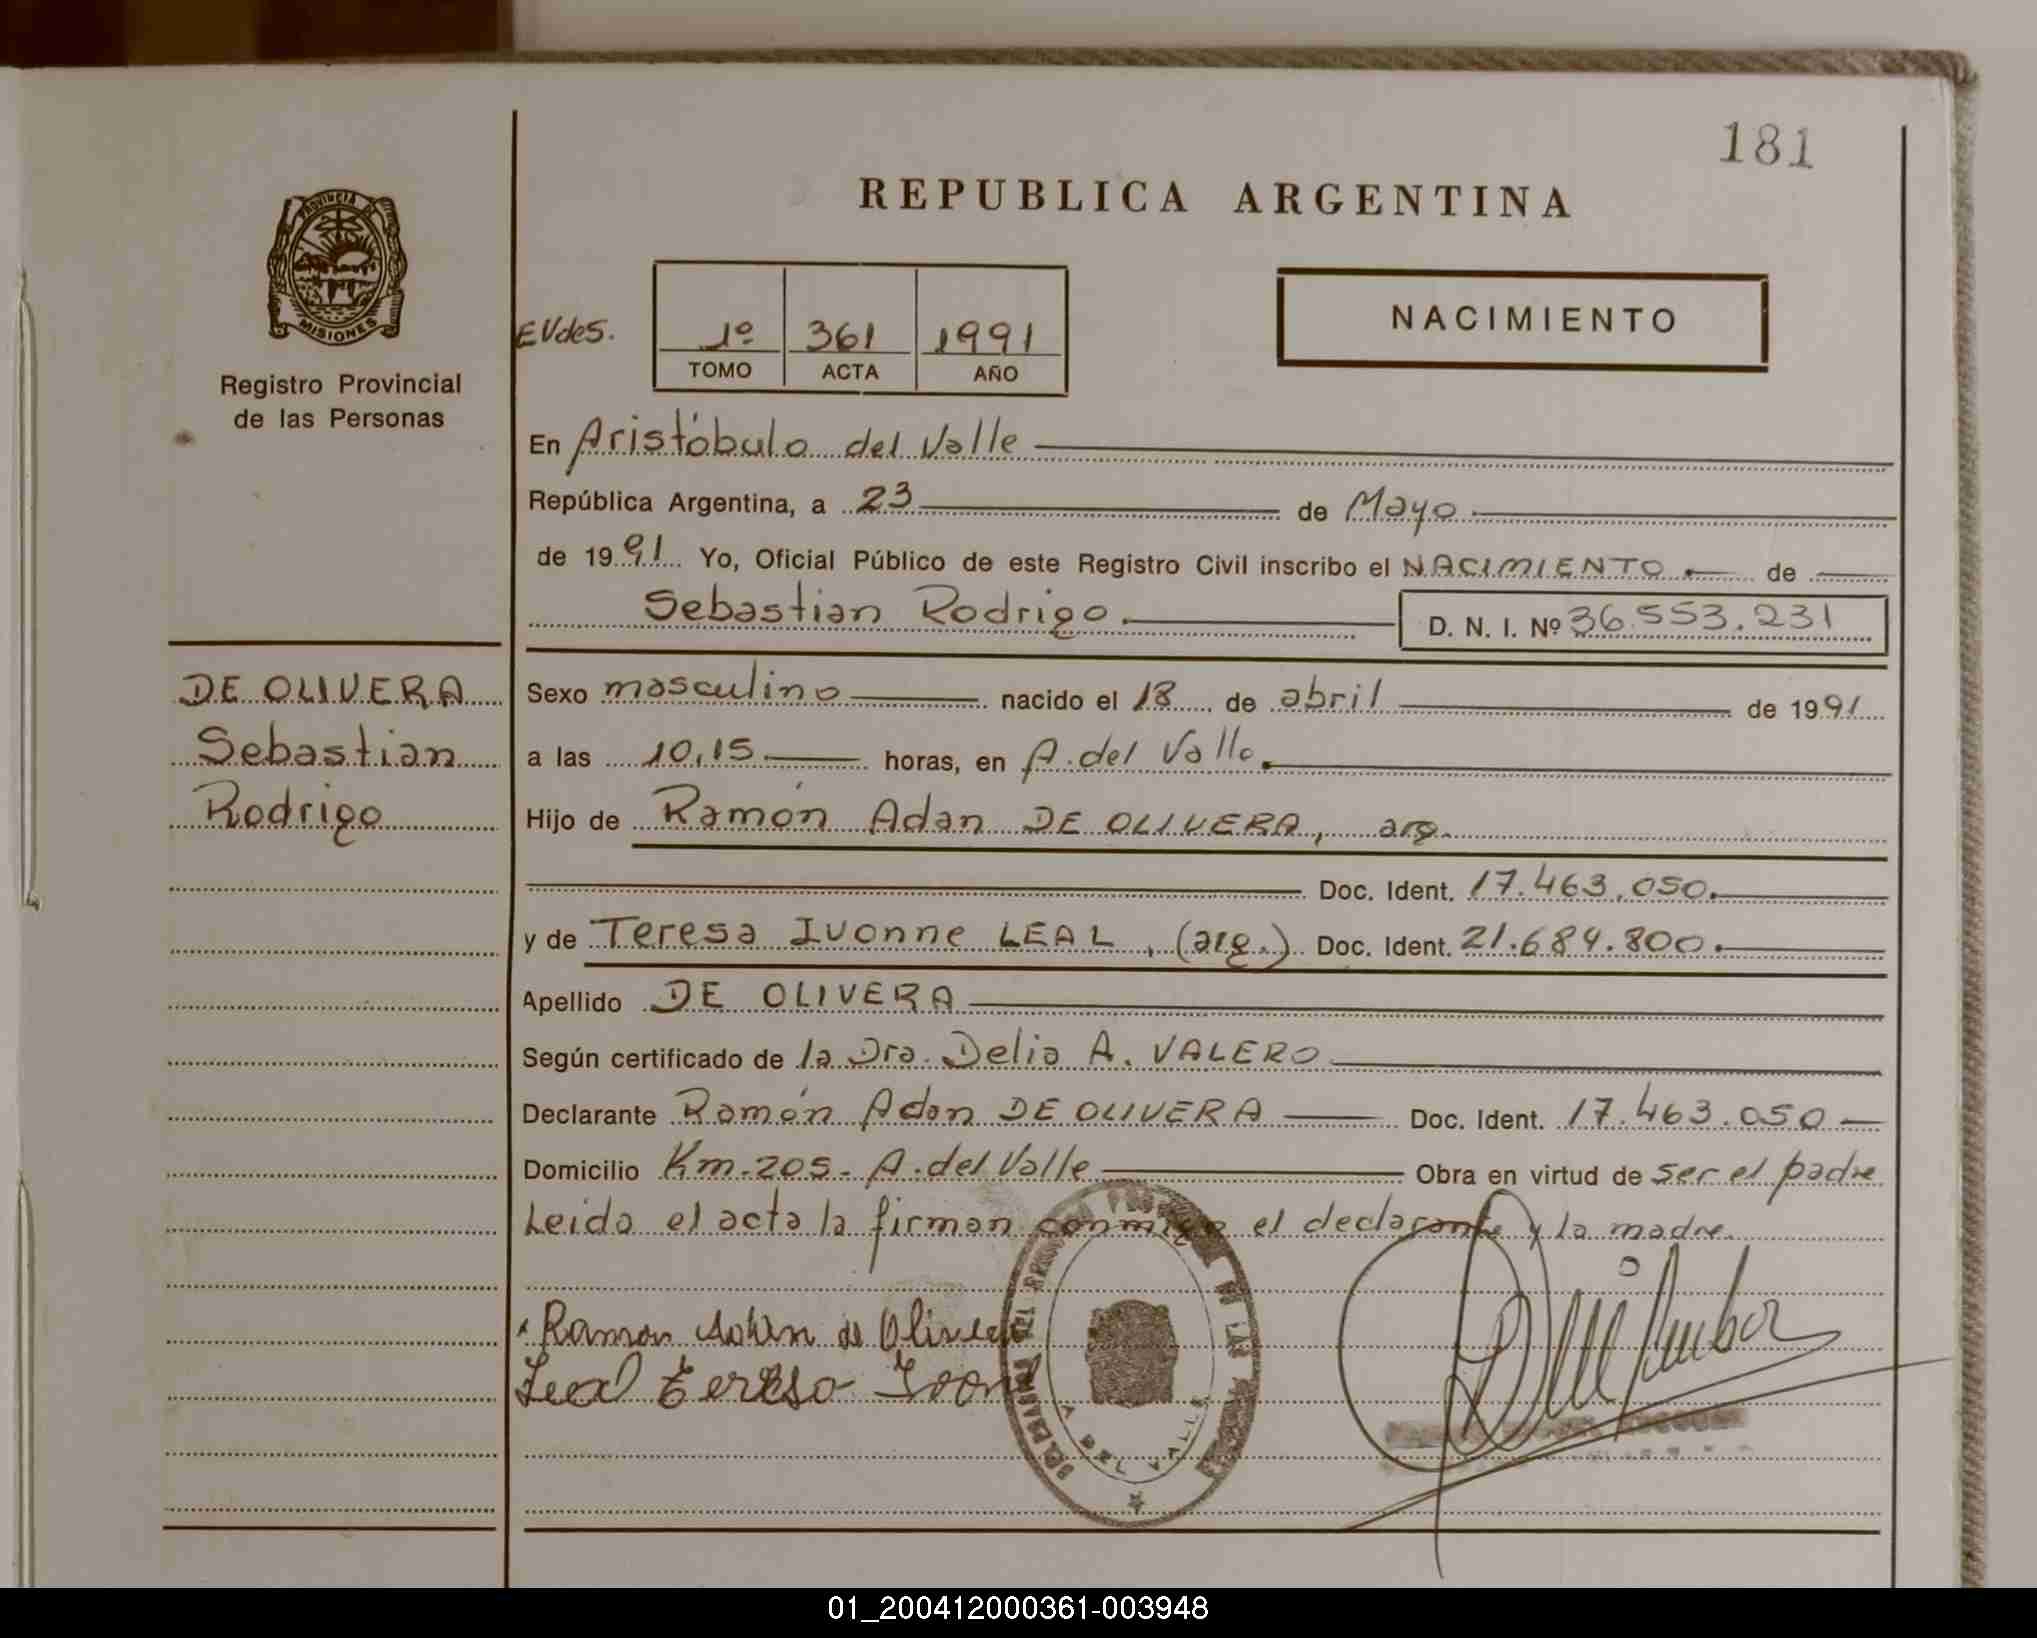 181
REPUBLICA ARGENTINA
PROVINCIA DE MISIONES
Registro Provincial
de las Personas
EVdes.
1º 361 1991
TOMO ACTA AÑO
NACIMIENTO
En Aristóbulo del Valle
República Argentina, a 23 de Mayo
de 1991 Yo, Oficial Público de este Registro Civil inscribo el NACIMIENTO de
Sebastian Rodrigo D. N. I. Nº 36.553.231
DE OLIVERA
Sebastian
Rodrigo
Sexo masculino nacido el 18 de abril de 1991
a las 10,15 horas, en A. del Valle
Hijo de Ramón Adan DE OLIVERA, arg.
Doc. Ident. 17.463.050.
y de Teresa Ivonne LEAL, (arg.) Doc. Ident. 21.684.800.
Apellido DE OLIVERA
Según certificado de la Dra. Delia A. VALERO
Declarante Ramón Adan DE OLIVERA Doc. Ident. 17.463.050
Domicilio Km. 205 - A. del Valle Obra en virtud de ser el padre
Leida el acta la firman conmigo el declarante y la madre.
Ramon Adan de Olivera
Leal Teresa
A. DEL VALLE
01_200412000361-003948